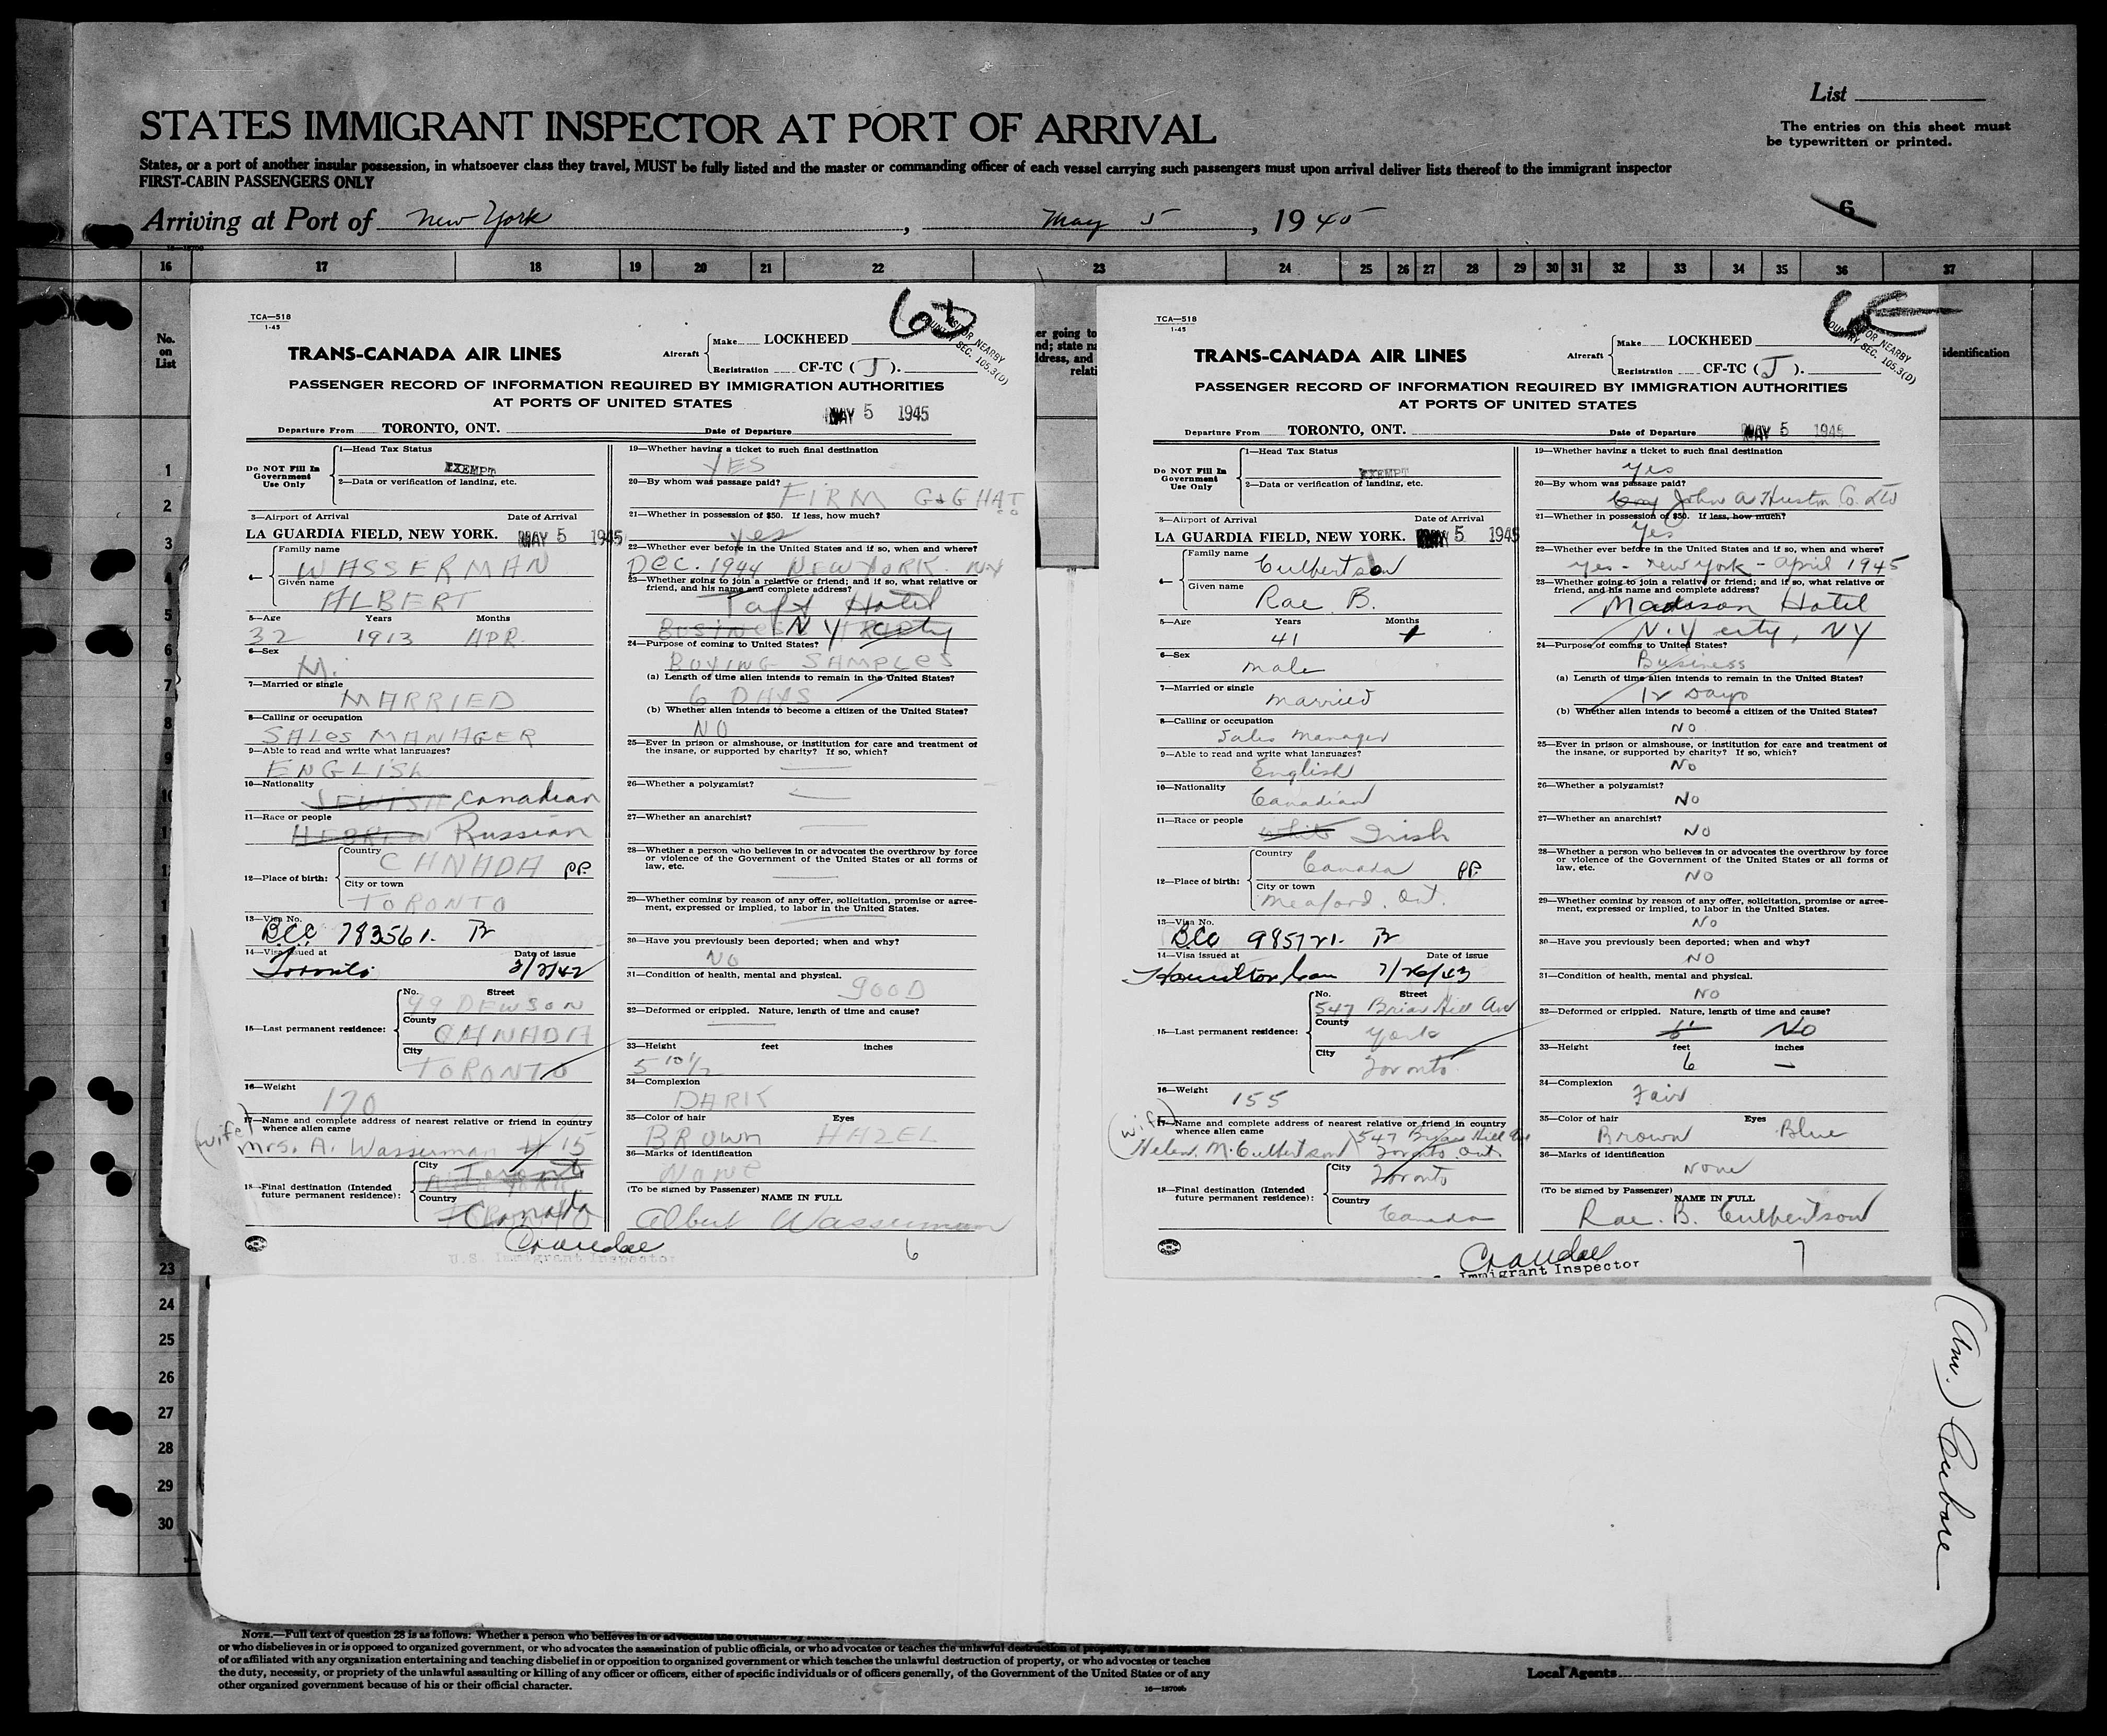 List
The entries on this sheet must
be typewritten or printed.
STATES IMMIGRANT INSPECTOR AT PORT OF ARRIVAL
States, or a port of another insular possession, in whatsoever class they travel, MUST be fully listed and the master or commanding officer of each vessel carrying such passengers must upon arrival deliver lists thereof to the immigrant inspector
FIRST-CABIN PASSENGERS ONLY
Arriving at Port of New York, May 5, 1945
6
16 17 18 19 20 21 22 23 24 25 26 27 28 29 30 31 32 33 34 35 36 37
No.
on
List
identification
TCA—518
1-45
TRANS-CANADA AIR LINES
Aircraft
Make LOCKHEED
Registration CF-TC ( J ).
NEARBY
SEC. 105.3(D)
PASSENGER RECORD OF INFORMATION REQUIRED BY IMMIGRATION AUTHORITIES
AT PORTS OF UNITED STATES
MAY 5 1945
Departure From TORONTO, ONT. Date of Departure
Do NOT Fill In
Government
Use Only
1—Head Tax Status
EXEMPT
2—Data or verification of landing, etc.
3—Airport of Arrival Date of Arrival
LA GUARDIA FIELD, NEW YORK. MAY 5 1945
4—
Family name
WASSERMAN
Given name
ALBERT
5—Age Years Months
32 1913 APR.
6—Sex
M.
7—Married or single
MARRIED
8—Calling or occupation
SALES MANAGER
9—Able to read and write what languages?
ENGLISH
10—Nationality
JEWISH Canadian
11—Race or people
HEBREW Russian
12—Place of birth:
Country
CANADA PP.
City or town
TORONTO
13—Visa No.
BCC 783561.
14—Visa issued at Date of issue
Toronto 3/2/42
15—Last permanent residence:
No. Street
99 DEWSON
County
CANADA
City
TORONTO
16—Weight
170
17—Name and complete address of nearest relative or friend in country
whence alien came
(wife)
Mrs. A. Wasserman # 15
18—Final destination (Intended
future permanent residence):
City
Toronto
Country
Canada
19—Whether having a ticket to such final destination
YES
20—By whom was passage paid?
FIRM G&G HAT
21—Whether in possession of $50. If less, how much?
yes
22—Whether ever before in the United States and if so, when and where?
DEC. 1944 NEW YORK. NY
23—Whether going to join a relative or friend; and if so, what relative or
friend, and his name and complete address?
Taft Hotel
BUSINESS TRIP N Y city
24—Purpose of coming to United States?
BUYING SAMPLES
(a) Length of time alien intends to remain in the United States?
6 DAYS
(b) Whether alien intends to become a citizen of the United States?
NO
25—Ever in prison or almshouse, or institution for care and treatment of
the insane, or supported by charity? If so, which?
26—Whether a polygamist?
27—Whether an anarchist?
28—Whether a person who believes in or advocates the overthrow by force
or violence of the Government of the United States or all forms of
law, etc.
29—Whether coming by reason of any offer, solicitation, promise or agree-
ment, expressed or implied, to labor in the United States.
30—Have you previously been deported; when and why?
NO
31—Condition of health, mental and physical.
GOOD
32—Deformed or crippled. Nature, length of time and cause?
33—Height feet inches
5 10½
34—Complexion
DARK
35—Color of hair Eyes
BROWN HAZEL
36—Marks of identification
NONE
(To be signed by Passenger) NAME IN FULL
Albert Wasserman
Crandall
U.S. Immigrant Inspector
6
TCA—518
1-45
TRANS-CANADA AIR LINES
Aircraft
Make LOCKHEED
Registration CF-TC ( J ).
NEARBY
SEC. 105.3(D)
PASSENGER RECORD OF INFORMATION REQUIRED BY IMMIGRATION AUTHORITIES
AT PORTS OF UNITED STATES
Departure From TORONTO, ONT. Date of Departure MAY 5 1945
Do NOT Fill In
Government
Use Only
1—Head Tax Status
EXEMPT
2—Data or verification of landing, etc.
3—Airport of Arrival Date of Arrival
LA GUARDIA FIELD, NEW YORK. MAY 5 1945
4—
Family name
Culbertson
Given name
Rae. B.
5—Age Years Months
41
6—Sex
male
7—Married or single
Married
8—Calling or occupation
Sales Manager
9—Able to read and write what languages?
English
10—Nationality
Canadian
11—Race or people
white Irish
12—Place of birth:
Country
Canada PP.
City or town
Meaford. Ont.
13—Visa No.
BCC 985721.
14—Visa issued at Date of issue
Hamilton Can 7/26/43
15—Last permanent residence:
No. Street
547 Briar Hill Ave
County
York
City
Toronto
16—Weight
155
17—Name and complete address of nearest relative or friend in country
whence alien came
(wife)
Helen. M. Culbertson 547 Briar Hill Ave
Toronto. Ont.
18—Final destination (Intended
future permanent residence):
City
Toronto
Country
Canada
19—Whether having a ticket to such final destination
yes
20—By whom was passage paid?
John A Huston Co. Ltd
21—Whether in possession of $50. If less, how much?
Yes
22—Whether ever before in the United States and if so, when and where?
yes - New York - April 1945
23—Whether going to join a relative or friend; and if so, what relative or
friend, and his name and complete address?
Madison Hotel
N.Y city, NY
24—Purpose of coming to United States?
Business
(a) Length of time alien intends to remain in the United States?
12 Days
(b) Whether alien intends to become a citizen of the United States?
NO
25—Ever in prison or almshouse, or institution for care and treatment of
the insane, or supported by charity? If so, which?
No
26—Whether a polygamist?
No
27—Whether an anarchist?
No
28—Whether a person who believes in or advocates the overthrow by force
or violence of the Government of the United States or all forms of
law, etc.
NO
29—Whether coming by reason of any offer, solicitation, promise or agree-
ment, expressed or implied, to labor in the United States.
No
30—Have you previously been deported; when and why?
NO
31—Condition of health, mental and physical.
NO
32—Deformed or crippled. Nature, length of time and cause?
6' No
33—Height feet inches
6 —
34—Complexion
Fair
35—Color of hair Eyes
Brown Blue
36—Marks of identification
None
(To be signed by Passenger) NAME IN FULL
Rae. B. Culbertson
Crandall
Immigrant Inspector
7
1
2
3
4
5
6
7
8
9
23
24
25
26
27
28
29
30
NOTE.—Full text of question 28 is as follows: Whether a person who believes in or advocates the overthrow by
or who disbelieves in or is opposed to organized government, or who advocates the assassination of public officials, or who advocates or teaches the unlawful destruction of property, or is a member
of or affiliated with any organization entertaining and teaching disbelief in or opposition to organized government or which teaches the unlawful destruction of property, or who advocates or teaches
the duty, necessity, or propriety of the unlawful assaulting or killing of any officer or officers, either of specific individuals or of officers generally, of the Government of the United States or of any
other organized government because of his or their official character.
16—18700b
Local Agents